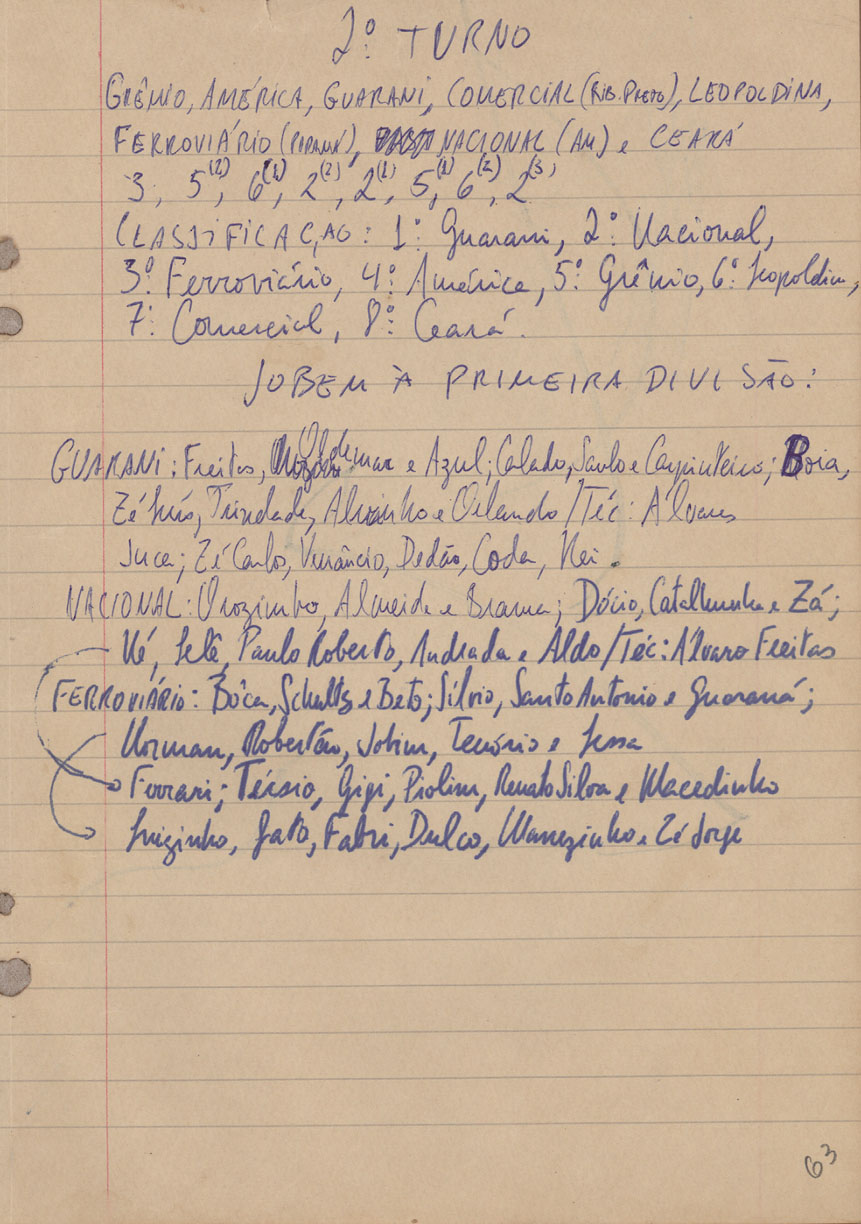 2º TURNO
GRÊMIO, AMÉRICA, GUARANI, COMERCIAL (RIB. PRETO), LEOPOLDINA,
FERROVIÁRIO (PARANÁ), NACIONAL (AM) e CEARÁ
3, 5(2), 6(1), 2(2), 2(1), 5(1), 6(2), 2(3)
CLASSIFICAÇÃO: 1º Guarani, 2º Nacional,
3º Ferroviário, 4º América, 5º Grêmio, 6º Leopoldina,
7º Comercial, 8º Ceará.
SOBEM À PRIMEIRA DIVISÃO:
GUARANI: Freitas, Oldemar e Azul; Calado, Saulo e Carpinteiro; Boia,
Zé Luís, Trindade, Alvinho e Orlando / Téc: Álvares
Juca; Zé Carlos, Venâncio, Dedão, Coda, Nei.
NACIONAL: Orozimbo, Almeida e Brama; Dócio, e Zá;
Ké, Lelê, Paulo Roberto, Andrada e Aldo / Téc: Álvaro Freitas
FERROVIÁRIO: Bôca, Schultz e Beto; Sílvio, Santo Antonio e Guaraná;
Norman, Robertão, Jobim, Tenório e Lessa
Ferrari; Tércio, Gigi, Piolim, Renato Silva e Macedinho
Luizinho, Gato, Fabri, Dulco, Manezinho e Zé Jorge
63